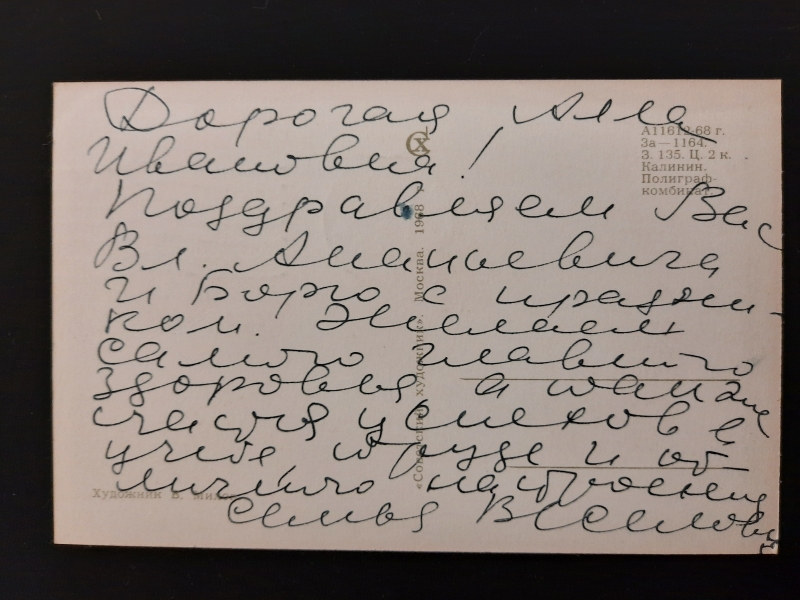 Дорогая Алла
Ивановна!
Поздравляем Вас
Вл. Ананьевича
и Борю с праздни-
ком. Желаем
самого главного
здоровья а также
счастья успехов в
учебе труде и от-
личного настроения
Семья
А11612-68 г.
За—1164.
З. 135. Ц. 2 к.
Калинин.
Полиграф-
комбинат.
«Советский художник». Москва. 1968 г.
Художник В.